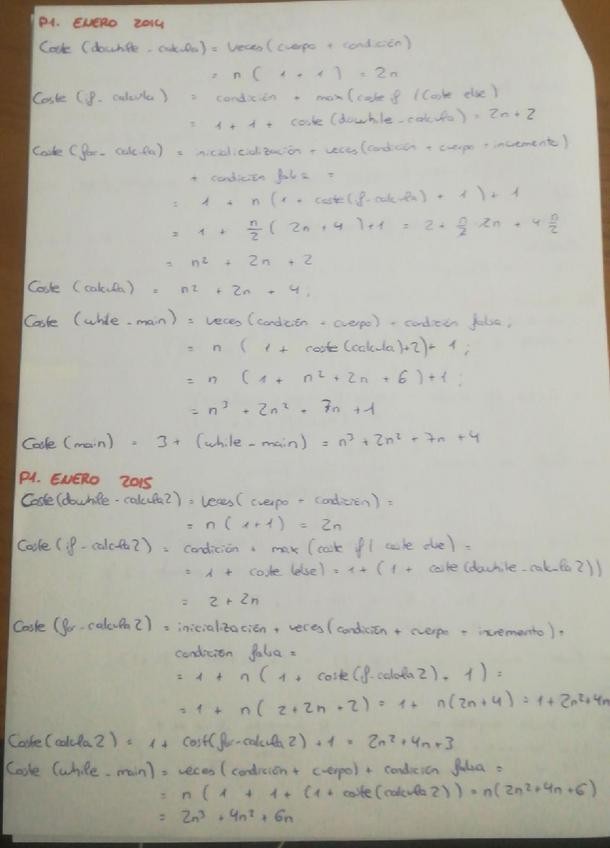 P1. ENERO 2014
Coste (dowhile - calcula) = veces (cuerpo + condición)
= n ( 1 + 1 ) = 2n
Coste (if - calcula) = condición + max (coste if / Coste else)
= 1 + 1 + coste (dowhile - calcula) = 2n + 2
Coste (for - calcula) = inicialicialización + veces (condición + cuerpo + incremento)
+ condición falsa =
= 1 + n (1 + coste (if - calcula) + 1) + 1
= 1 + n/2 ( 2n + 4 ) + 1 = 2 + n/2 2n + 4 n/2
= n² + 2n + 2
Coste (calcula) = n² + 2n + 4;
Coste (while - main) = veces (condición + cuerpo) + condición falsa;
= n ( 1 + coste (calcula) + 2) + 1;
= n (1 + n² + 2n + 6) + 1;
= n³ + 2n² + 7n + 1
Coste (main) = 3 + (while - main) = n³ + 2n² + 7n + 4
P1. ENERO 2015
Coste (dowhile - calcula2) = veces ( cuerpo + condición) =
= n ( 1 + 1 ) = 2n
Coste (if - calcula2) = condición + max (coste if / coste else) =
= 1 + coste (else) = 1 + (1 + coste (dowhile - calcula2))
= 2 + 2n
Coste (for - calcula2) = inicialización + veces (condición + cuerpo + incremento) +
condición falsa =
= 1 + n ( 1 + coste (if - calcula2) + 1) =
= 1 + n ( 2 + 2n + 2) = 1 + n (2n + 4) = 1 + 2n² + 4n
Coste (calcula2) = 1 + cost (for - calcula2) + 1 = 2n² + 4n + 3
Coste (while - main) = veces (condición + cuerpo) + condición falsa =
= n ( 1 + 1 + (1 + coste (calcula2)) = n (2n² + 4n + 6)
= 2n³ + 4n² + 6n